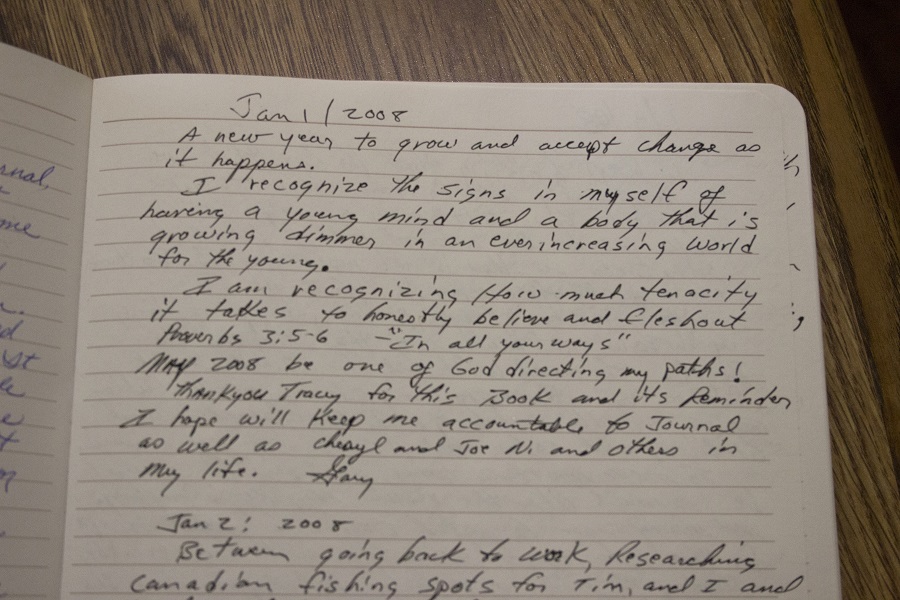 Jan 1 / 2008
A new year to grow and accept change as
it happens.
I recognize the signs in myself of
having a young mind and a body that is
growing dimmer in an everincreasing world
for the young.
I am recognizing How much tenacity
it takes to honestly believe and fleshout
Proverbs 3:5-6 - "In all your ways"
May 2008 be one of God directing my paths!
Thankyou Tracy for this Book and its Reminder
I hope will Keep me accountable to Journal
as well as Cheryl and Joe N. and others in
my life. Gary
Jan 2: 2008
Between going back to work, Researching
Canadian fishing spots for Tim, and I and